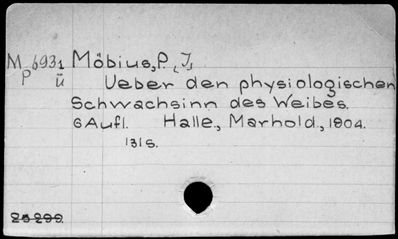 M p693ı Möbius, P. [J.
ü Ueber den physiologischen
Schwachsinn des Weibes.
6 Aufl. Halle, Marhold, 1904.
131 S.
28 299.